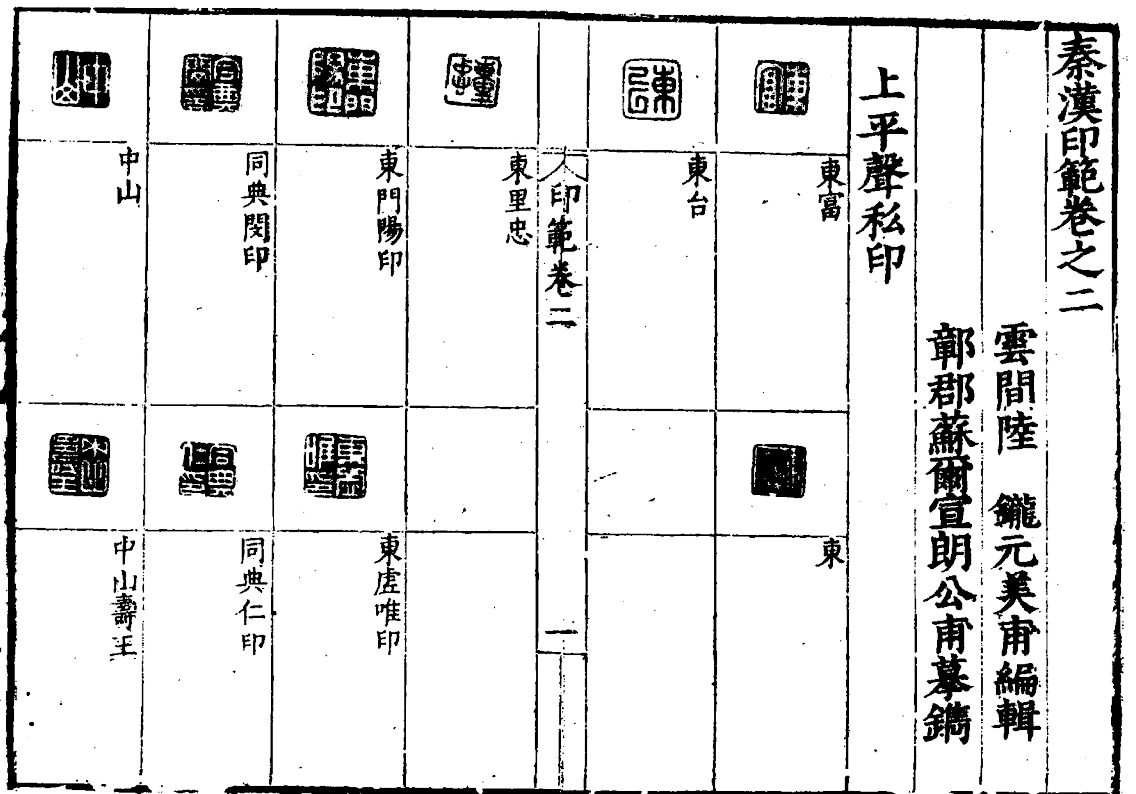 秦漢印範卷之二
雲間陸　鑨元美甫編輯
鄣郡蘇爾宣朗公甫摹鐫
上平聲私印
東富
東
東台
印範卷二
一
東里忠
東門陽印
東虗唯印
同典閔印
同典仁印
中山
中山壽王